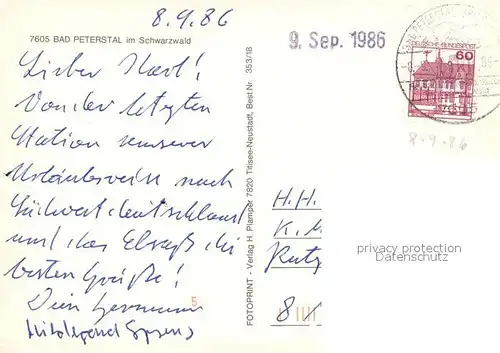 8.9.86
7605 BAD PETERSTAL im Schwarzwald
9. Sep. 1986
DEUTSCHE BUNDESPOST
60
8.9.86
Lieber Karl!
Von der letzten
Station unserer
Urlaubsreise nach
Südwestdeutschland
und das Elsaß die
besten Grüße!
Dein Hermann
5
FOTOPRINT - Verlag H. Plamper 7820 Titisee-Neustadt, Best Nr. 353/18
H. H.
K.
8
privacy protection
Datenschutz